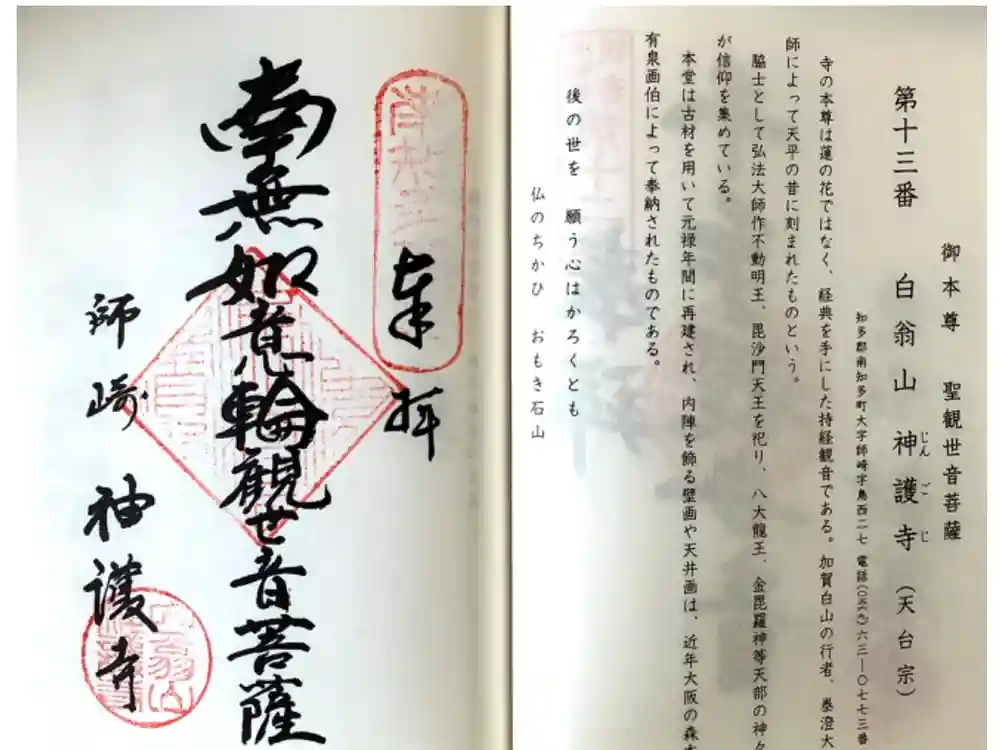 御本尊 聖観世音菩薩
第十三番 白翁山 神護寺(天台宗)
じんごじ
知多郡南知多町大字師崎字鳥西二七 電話(〇五六九)六三―〇七七三番
寺の本尊は蓮の花ではなく、経典を手にした持経観音である。加賀白山の行者、泰澄大
師によって天平の昔に刻まれたものという。
脇士として弘法大師作不動明王、毘沙門天王を祀り、八大龍王、金毘羅神等天部の神々
が信仰を集めている。
本堂は古材を用いて元禄年間に再建され、内陣を飾る壁画や天井画は、近年大阪の森本
有泉画伯によって奉納されたものである。
後の世を 願う心はかろくとも
仏のちかひ おもき石山
奉拝
南無如意輪観世音菩薩
師崎 神護寺